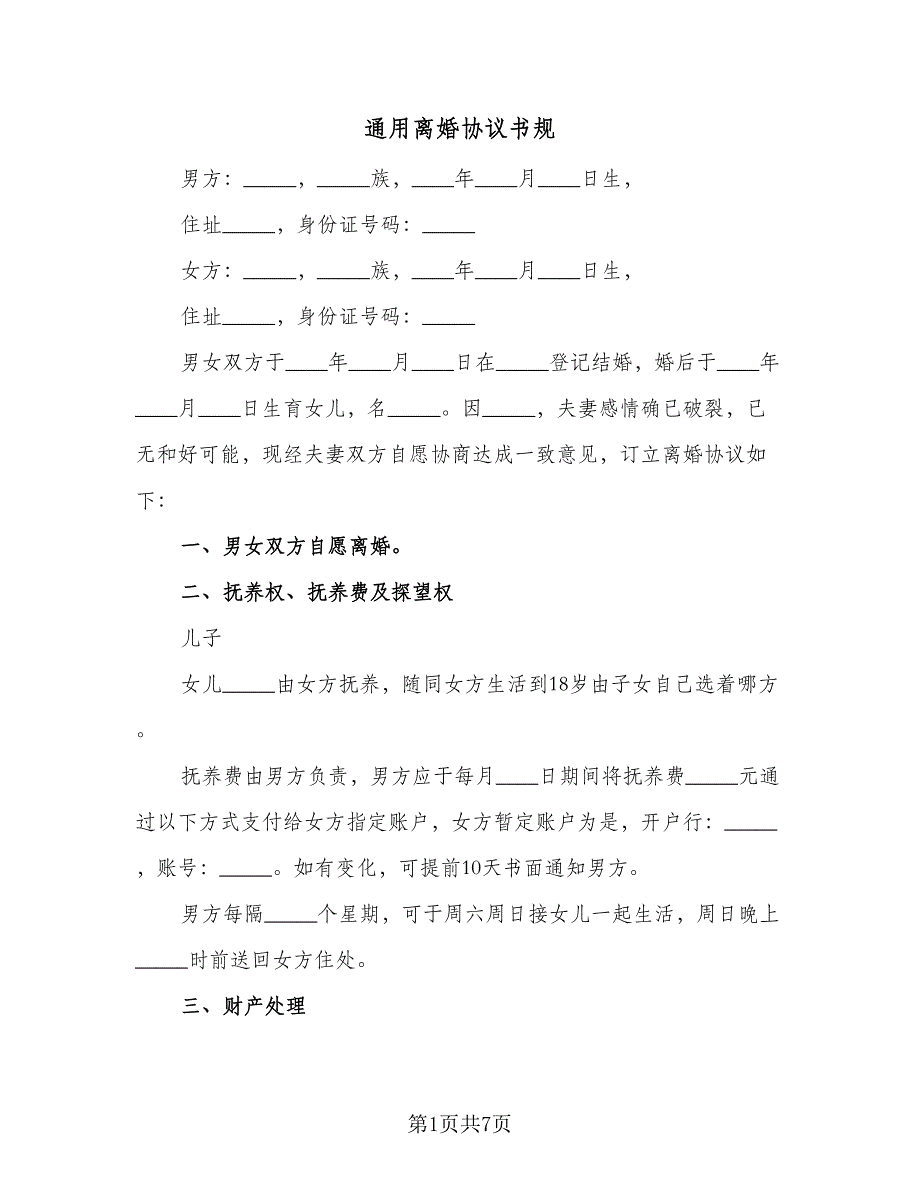 通用离婚协议书规
男方：_____，_____族，____年____月____日生，
住址_____，身份证号码：_____
女方：_____，_____族，____年____月____日生，
住址_____，身份证号码：_____
男女双方于____年____月____日在_____登记结婚，婚后于____年
____月____日生育女儿，名_____。因_____，夫妻感情确已破裂，已
无和好可能，现经夫妻双方自愿协商达成一致意见，订立离婚协议如
下：
一、男女双方自愿离婚。
二、抚养权、抚养费及探望权
儿子
女儿_____由女方抚养，随同女方生活到18岁由子女自己选着哪方
。
抚养费由男方负责，男方应于每月____日期间将抚养费_____元通
过以下方式支付给女方指定账户，女方暂定账户为是，开户行：_____
，账号：_____。如有变化，可提前10天书面通知男方。
男方每隔_____个星期，可于周六周日接女儿一起生活，周日晚上
_____时前送回女方住处。
三、财产处理
第1页共7页